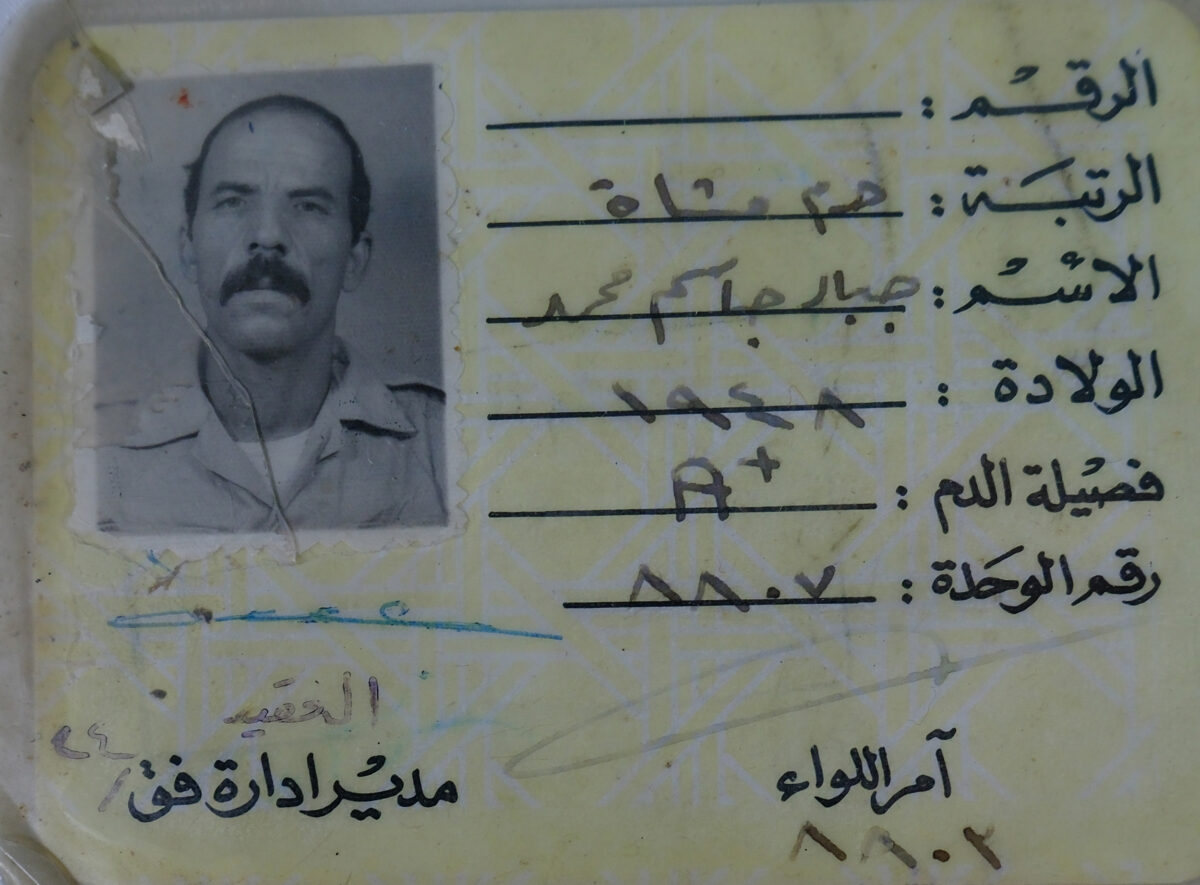 الرقم :
الرتبة : هـ م مشاة
الاسم : جبار جاسم محمد
الولادة : ١٩٤٨
فصيلة الدم : A+
رقم الوحدة : ٨٨٠٧
العقيد
مدير ادارة فق / ٢٤
آمر اللواء
٨٨٠٢